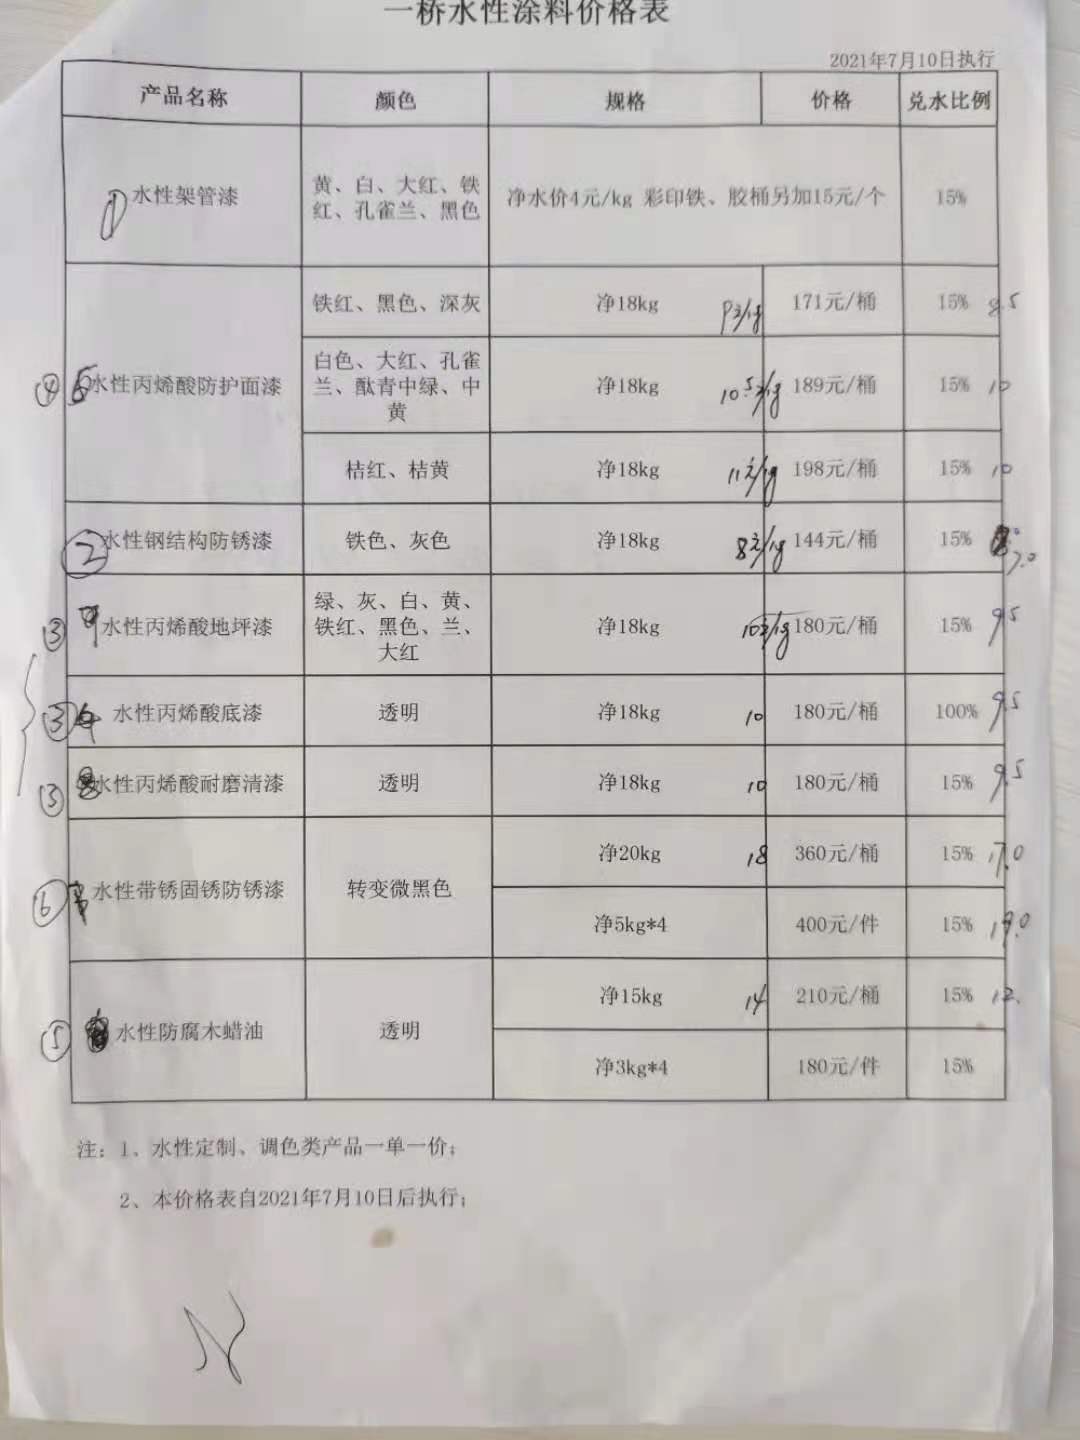 一桥水性涂料价格表
2021年7月10日执行
产品名称 颜色 规格 价格 兑水比例
① 水性架管漆
黄、白、大红、铁
红、孔雀兰、黑色
净水价4元/kg 彩印铁、胶桶另加15元/个 15%
铁红、黑色、深灰 净18kg 9元/kg 171元/桶 15% 8.5
④ 水性丙烯酸防护面漆
白色、大红、孔雀
兰、酞青中绿、中
黄
净18kg 10.5元/kg 189元/桶 15% 10
桔红、桔黄 净18kg 11元/kg 198元/桶 15% 10
② 水性钢结构防锈漆 铁色、灰色 净18kg 8元/kg 144元/桶 15% 7.0
③ 水性丙烯酸地坪漆
绿、灰、白、黄、
铁红、黑色、兰、
大红
净18kg 10元/kg 180元/桶 15% 9.5
③ 水性丙烯酸底漆 透明 净18kg 10 180元/桶 100% 9.5
③ 水性丙烯酸耐磨清漆 透明 净18kg 10 180元/桶 15% 9.5
⑥ 水性带锈固锈防锈漆 转变微黑色
净20kg 18 360元/桶 15% 17.0
净5kg*4 400元/件 15% 19.0
⑤ 水性防腐木蜡油 透明
净15kg 14 210元/桶 15% 12.
净3kg*4 180元/件 15%
注：1、水性定制、调色类产品一单一价；
2、本价格表自2021年7月10日后执行；